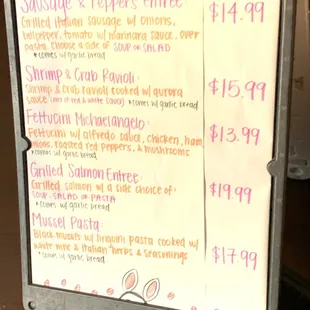 Sausage & Peppers Entree
$14.99
Grilled italian sausage w/ onions,
bellpepper, tomato w/ marinara sauce, over
pasta. Choose a side of SOUP OR SALAD
*comes w/ garlic bread
Shrimp & Crab Ravioli:
$15.99
Shrimp & Crab ravioli cooked w/ aurora
sauce (mix of red & white sauce) *comes w/ garlic bread
Fettucini Michaelangelo:
$13.99
Fettucini w/ alfredo sauce, chicken, ham,
onions, roasted red peppers, & mushrooms
*comes w/ garlic bread
Grilled Salmon Entree:
$19.99
Grilled salmon w/ a side choice of:
SOUP-SALAD OR PASTA
*comes w/ garlic bread
Mussel Pasta:
$17.99
Black mussels w/ linguini pasta cooked w/
white wine & Italian herbs & seasonings
*comes w/ garlic bread